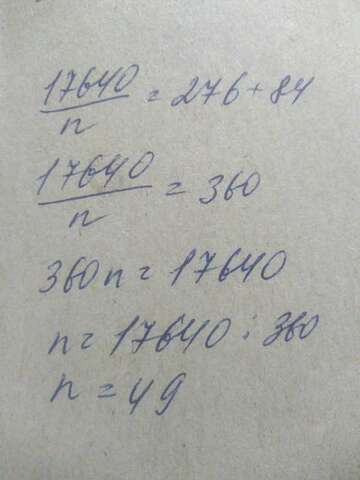 17640/n = 276 + 84
17640/n = 360
360n = 17640
n = 17640 : 360
n = 49